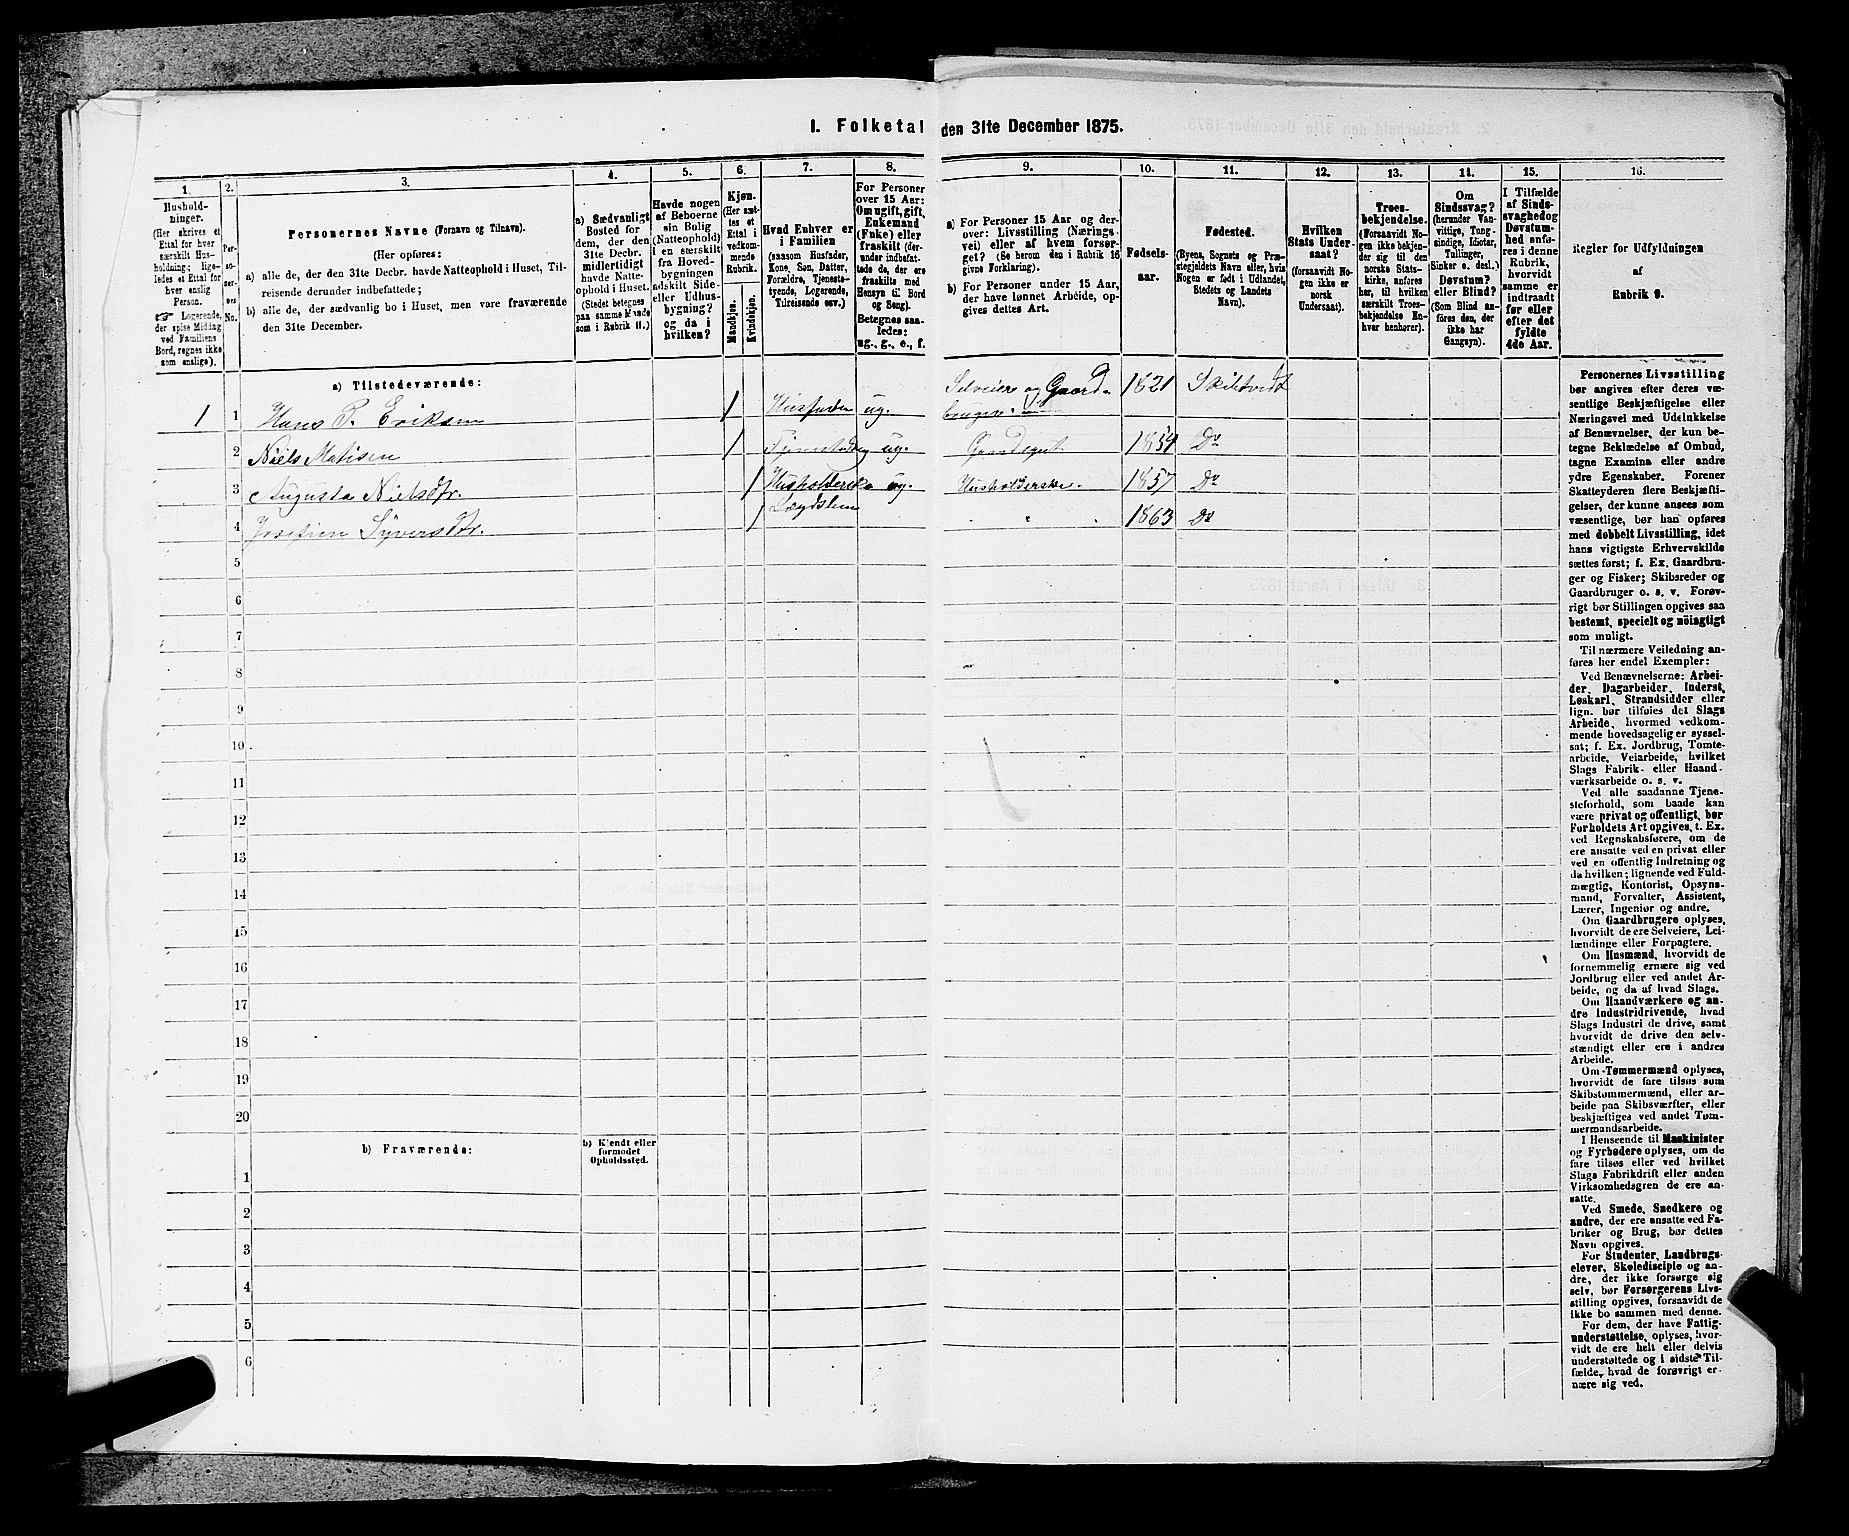 I. Folketal den 31te December 1875.
1. 2. 3. 4. 5. 6. 7. 8. 9. 10. 11. 12. 13. 14. 15. 16.
Hushold-
ninger.
(Her skrives et
Ettal for hver
særskilt Hus-
holdning; lige-
ledes et Ettal for
hver enslig
Person.
☞ Logerende,
der spise Middag
ved Familiens
Bord, regnes ikke
som enslige).
Per-
so-
ner-
nes
No.
Personernes Navne (Fornavn og Tilnavn).
(Her opføres:
a) alle de, der den 31te Decbr. havde Natteophold i Huset, Til-
reisende derunder indbefattede;
b) alle de, der sædvanlig bo i Huset, men vare fraværende
den 31te December.
a) Sædvanligt
Bosted for
dem, der den
31te Decbr.
midlertidigt
havde Natte-
ophold i Huset.
(Stedet betegnes
paa samme Maade
som i Rubrik 11.)
Havde nogen
af Beboerne
sin Bolig
(Natteophold)
i en særskilt
fra Hoved-
bygningen
adskilt Side-
eller Udhus-
bygning?
og da i
hvilken?
Kjøn.
(Her sæt-
tes et
Ettal i
vedkom-
mende
Rubrik.
Mandkjøn.
Kvindekjøn.
Hvad Enhver er
i Familien
(saasom Husfader,
Kone, Søn, Datter,
Forældre, Tjeneste-
tyende, Logerende,
Tilreisende osv.)
For Personer
over 15 Aar:
Om ugift, gift,
Enkemand
(Enke) eller
fraskilt (der-
under indbefat-
tede de, der ere
fraskilte med
Hensyn til Bord
og Seng).
Betegnes saa-
ledes:
ug., g., e., f.
a) For Personer 15 Aar og der-
over: Livsstilling (Nærings-
vei) eller af hvem forsør-
get? (Se herom den i Rubrik 16
givne Forklaring).
b) For Personer under 15 Aar,
der have lønnet Arbeide, op-
gives dettes Art.
Fødsels-
aar.
Fødested.
(Byens, Sognets og Præ-
stegjeldets Navn eller, hvis
Nogen er født i Udlandet,
Stedets og Landets
Navn).
Hvilken
Stats Under-
saat?
(forsaavidt No-
gen ikke er
norsk
Undersaat).
Troes-
bekjendelse.
(Forsaavidt No-
gen ikke bekjen-
der sig til den
norske Stats-
kirke, anføres
her, til hvilken
særskilt Troes-
bekjendelse En-
hver henhører).
Om
Sindssvag?
(herunder Van-
vittige, Tung-
sindige, Idioter,
Tullinger,
Sinker o. desl.)
Døvstum?
eller Blind?
(Som Blind an-
føres den, der
ikke har
Gangsyn).
I Tilfælde
af Sinds-
svaghed og
Døvstum-
hed anfø-
res i denne
Rubrik,
hvorvidt
samme er
indtraadt
før eller
efter det
fyldte
4de Aar.
Regler for Udfyldningen
af
Rubrik 9.
a) Tilstedeværende:
1 1 Hans P. Eriksen 1 Husfader ug. Selveier og Gaard- bruger. 1821 Skibtvedt
2 Niels Matisen 1 ug. 1859 Do
3 Augusta Nielsdtr. 1 Husholderske ug. Husholderske. 1857 Do
4 Josefine Syversdtr. 1 Lægdslem " 1863 Do
5
6
7
8
9
10
11
12
13
14
15
16
17
18
19
20
b) Fraværende:
b) Kjendt eller
formodet
Opholdssted.
1
2
3
4
5
6
Personernes Livsstilling
bør angives efter deres væ-
sentlige Beskjæftigelse eller
Næringsvei med Udelukkelse
af Benævnelser, der kun be-
tegne Beklædelse af Ombud,
tagne Examina eller andre
ydre Egenskaber. Forener
Skatteyderen flere Beskjæfti-
gelser, der kunne ansees som
væsentlige, bør han opføres
med dobbelt Livsstilling, idet
hans vigtigste Erhvervskilde
sættes først; f. Ex. Gaardbru-
ger og Fisker; Skibsreder og
Gaardbruger o. s. v. Forøv-
rigt bør Stillingen opgives saa
bestemt, specielt og nöiagtigt
som muligt.
Til nærmere Veiledning an-
føres her endel Exempler:
Ved Benævnelserne: Arbei-
der, Dagarbeider, Inderst,
Løskarl, Strandsidder eller
lign. bør tilføies det Slags
Arbeide, hvormed vedkom-
mende hovedsagelig er syssel-
sat; f. Ex. Jordbrug, Tomte-
arbeide, Veiarbeide, hvilket
Slags Fabrik- eller Haand-
værksarbeide o. s. v.
Ved alle saadanne Tjene-
steforhold, som baade kan
være privat og offentligt, bør
Forholdets Art opgives, t. Ex.
ved Regnskabsførere, om de
ere ansatte ved en privat eller
ved en offentlig Indretning og
da hvilken; lignende ved Fuld-
mægtig, Kontorist, Opsyns-
mand, Forvalter, Assistent,
Lærer, Ingeniør og andre.
Om Gaardbrugere oplyses,
hvorvidt de ere Selveiere, Lei-
lændinge eller Forpagtere.
Om Husmænd, hvorvidt de
fornemmelig ernære sig ved
Jordbrug eller ved andet Ar-
beide, og da af hvad Slags.
Om Haandværkere og an-
dre Industridrivende, hvad
Slags Industri de drive, samt
hvorvidt de drive den selv-
stændigt eller ere i andres
Arbeide.
Om Tømmermænd oplyses,
hvorvidt de fare tilsøs som
Skibstømmermænd, eller ar-
beide paa Skibsværfter, eller
beskjæftiges ved andet Tøm-
mermandsarbeide.
I Henseende til Maskinister
og Fyrbødere oplyses, om de
fare tilsøs eller ved hvilket
Slags Fabrikdrift eller anden
Virksomhedsgren de ere an-
satte.
Ved Smede, Snedkere og
andre, der ere ansatte ved Fa-
briker og Brug, bør dettes
Navn opgives.
For Studenter, Landbrugs-
elever, Skoledisciple og an-
dre, der ikke forsørge sig
selv, bør Forsørgerens Livs-
stilling opgives, forsaavidt de
ikke bo sammen med denne.
For dem, der have Fattig-
understøttelse, oplyses, hvor-
vidt de ere helt eller delvis
understøttede og i sidste Til-
fælde, hvad de forøvrigt er-
nære sig ved.